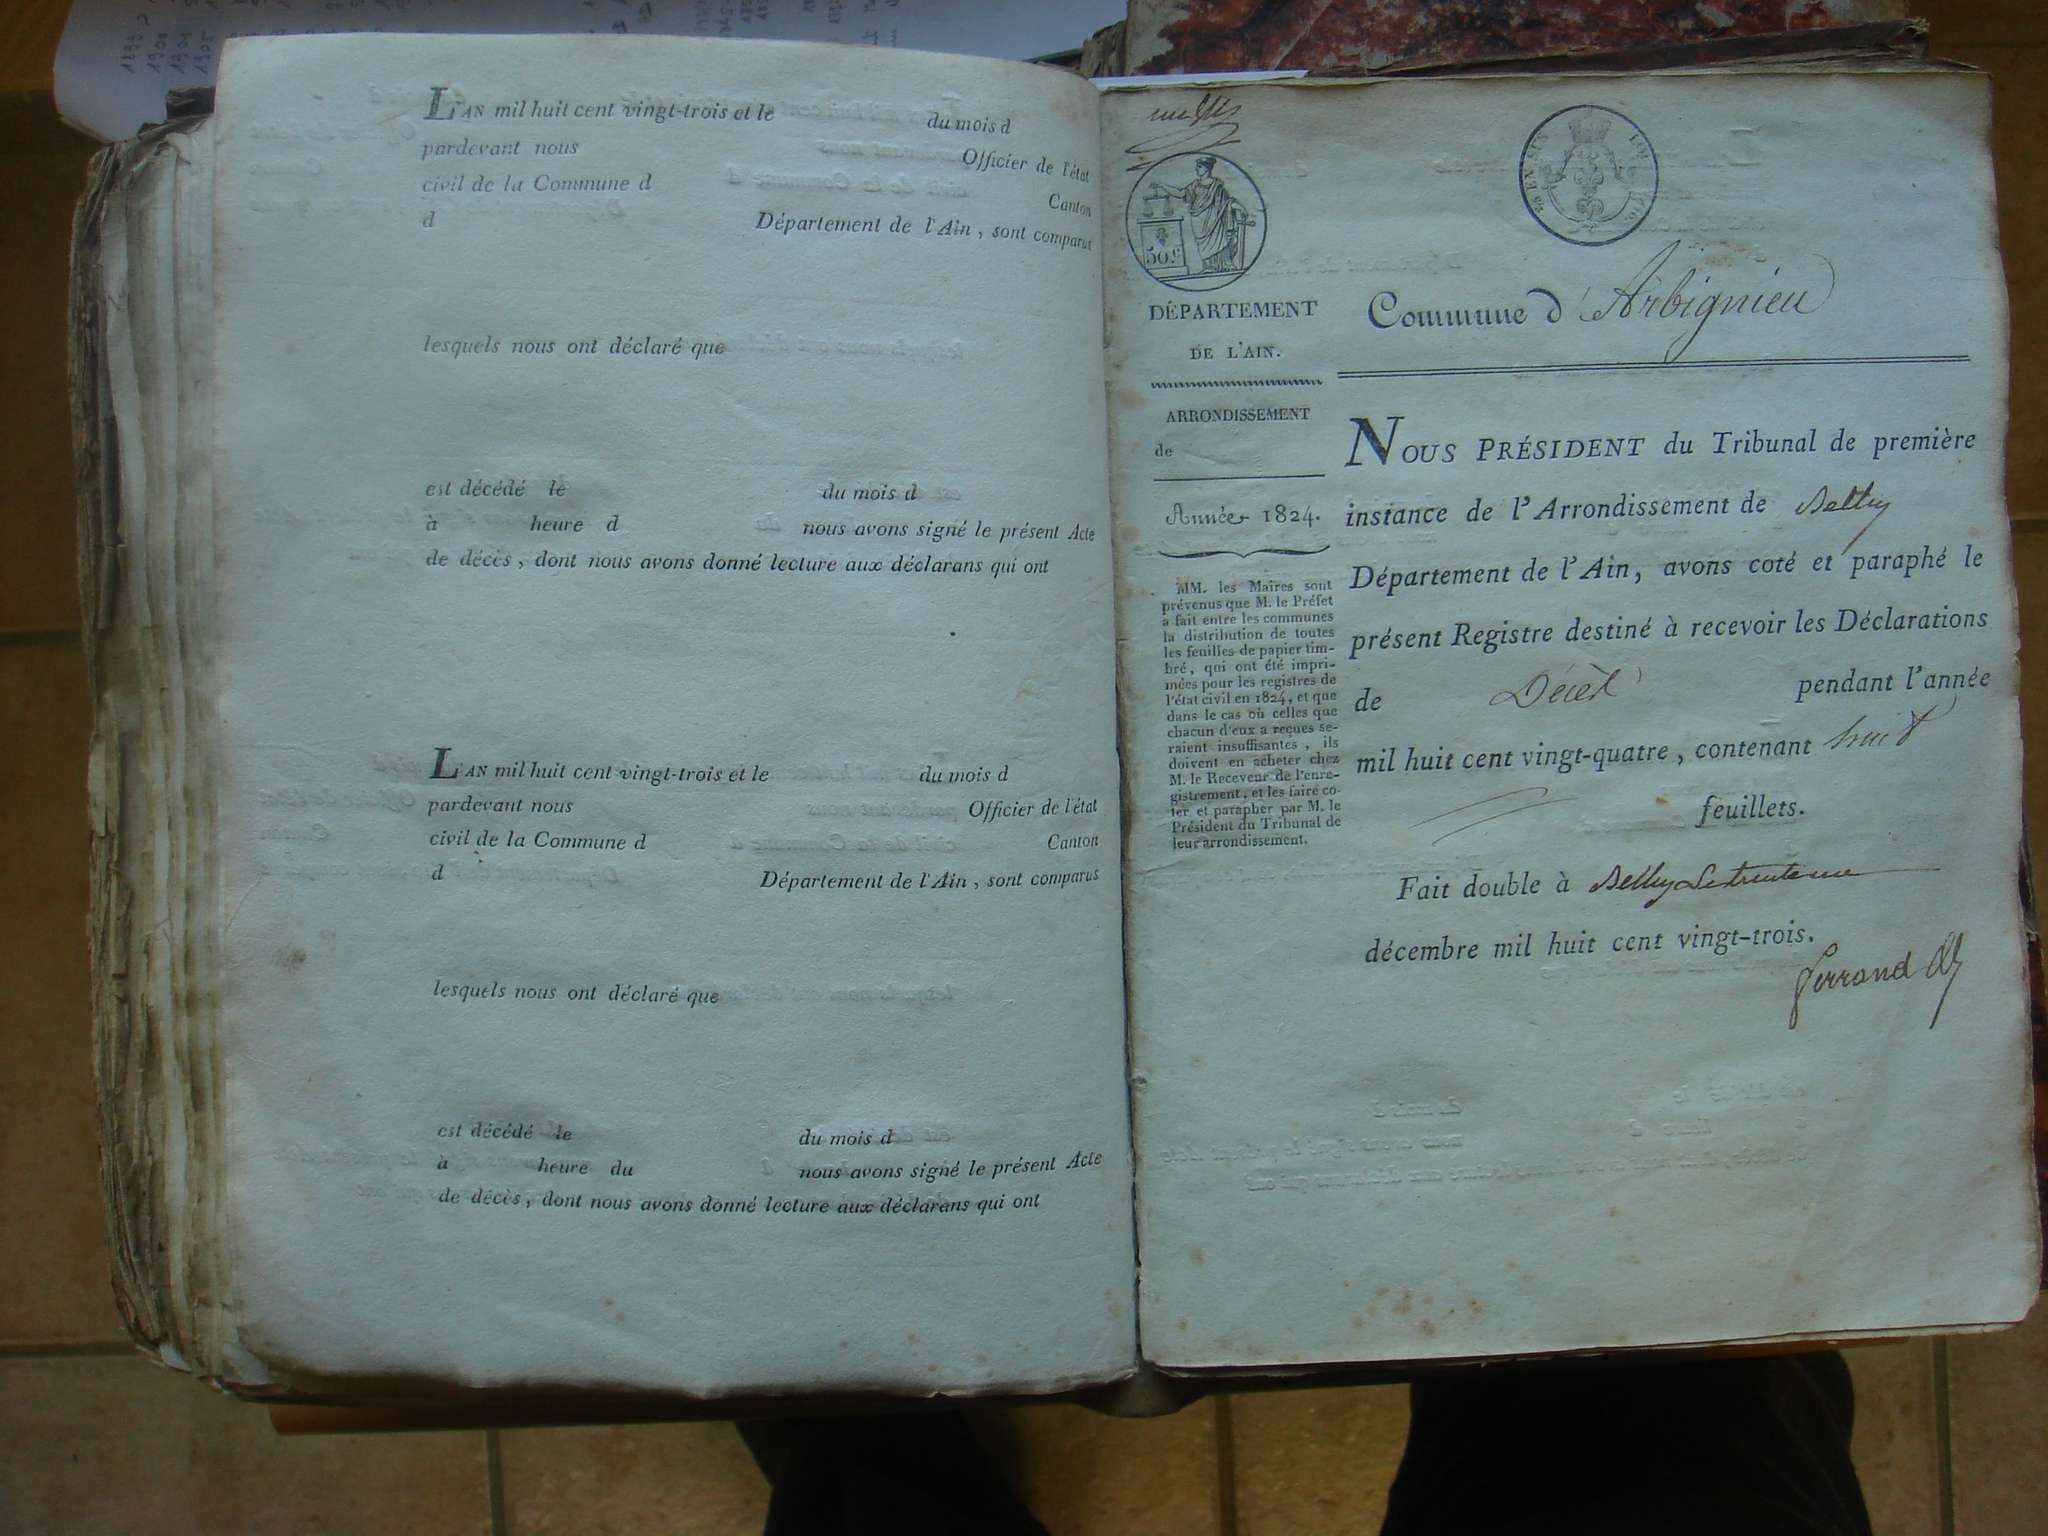 L'AN mil huit cent vingt-trois et le du mois d
pardevant nous Officier de l'état
civil de la Commune d Canton
d Département de l'Ain, sont comparus
lesquels nous ont déclaré que
est décédé le du mois d
à heure d nous avons signé le présent Acte
de décès, dont nous avons donné lecture aux déclarans qui ont
L'AN mil huit cent vingt-trois et le du mois d
pardevant nous Officier de l'état
civil de la Commune d Canton
d Département de l'Ain, sont comparus
lesquels nous ont déclaré que
est décédé le du mois d
à heure du nous avons signé le présent Acte
de décès, dont nous avons donné lecture aux déclarans qui ont
50.c
DÉPARTEMENT
DE L'AIN.
ARRONDISSEMENT
de
Année 1824.
MM. les Maires sont
prévenus que M. le Préfet
a fait entre les communes
la distribution de toutes
les feuilles de papier tim-
bré, qui ont été impri-
mées pour les registres de
l'état civil en 1824, et que
dans le cas où celles que
chacun d'eux a reçues se-
raient insuffisantes, ils
doivent en acheter chez
M. le Receveur de l'enre-
gistrement, et les faire co-
ter et parapher par M. le
Président du Tribunal de
leur arrondissement.
Commune d'Arbignieu
NOUS PRÉSIDENT du Tribunal de première
instance de l'Arrondissement de Belley
Département de l'Ain, avons coté et paraphé le
présent Registre destiné à recevoir les Déclarations
de Décès pendant l'année
mil huit cent vingt-quatre, contenant huit
feuillets.
Fait double à Belley le trente un
décembre mil huit cent vingt-trois.